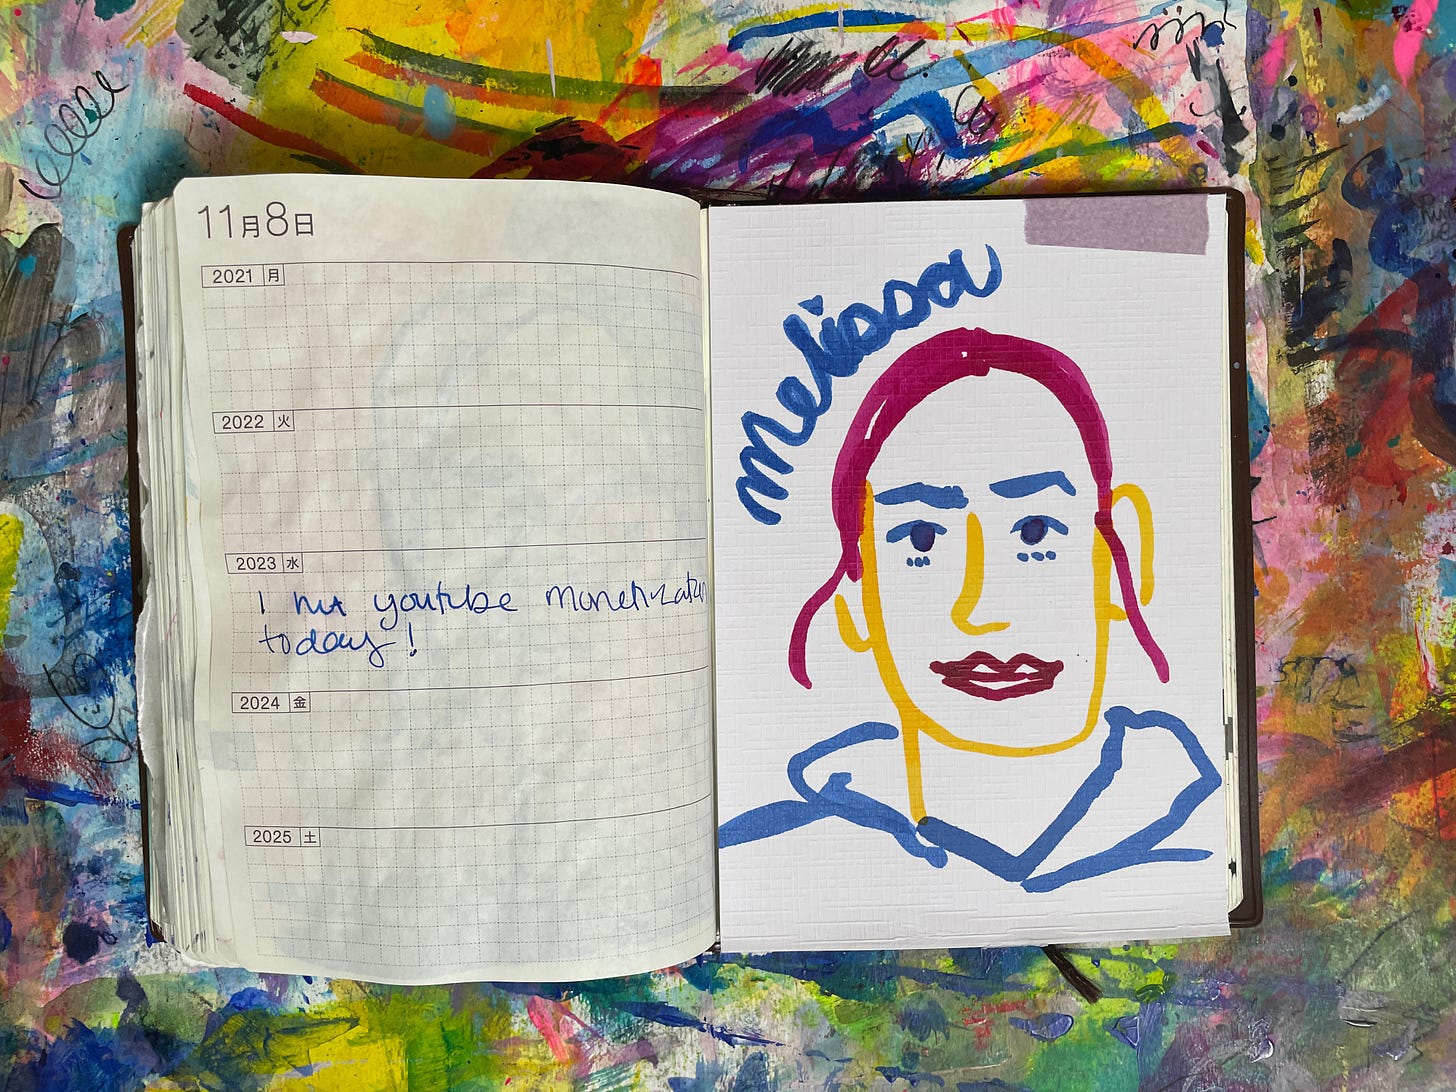 11月8日
2021 月
2022 火
2023 水
I hit youtube monetization
today!
2024 金
2025 土
melissa